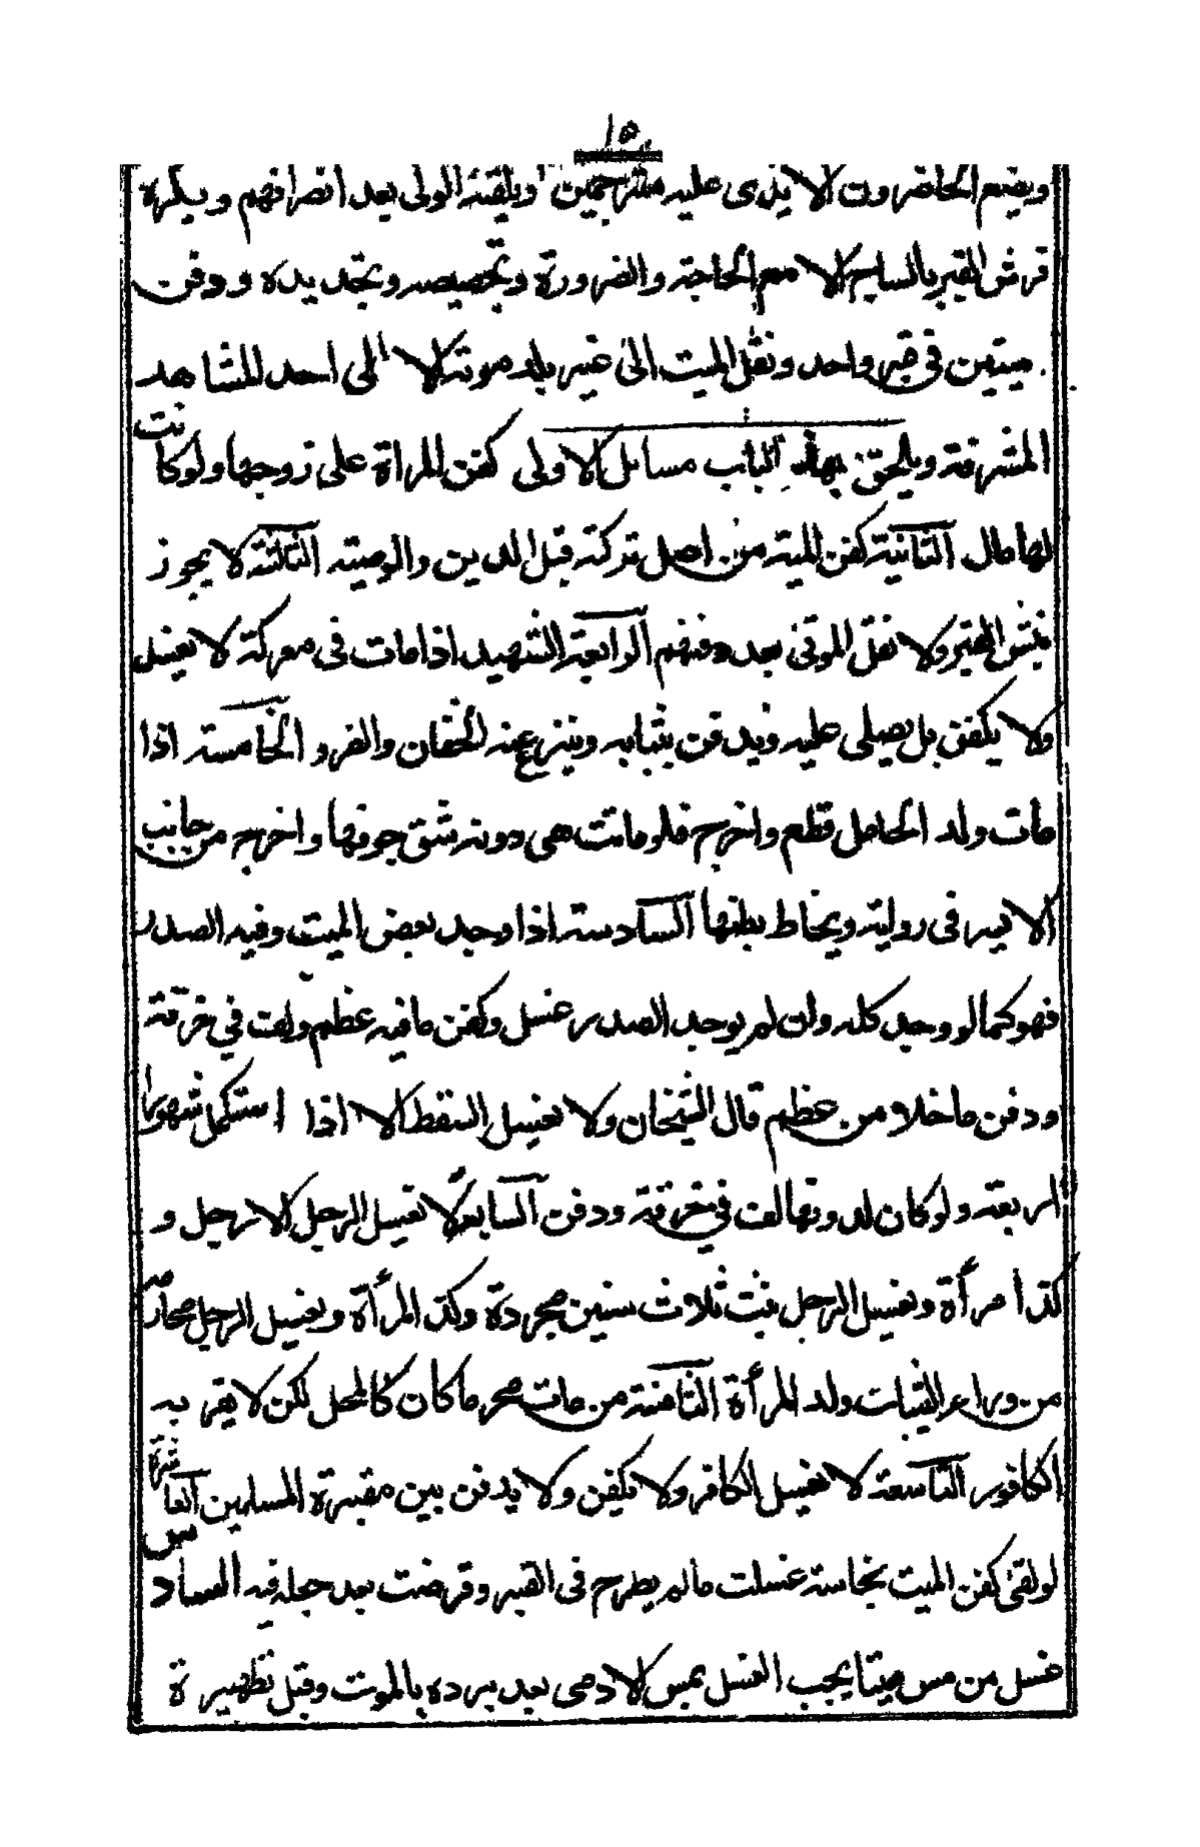 ١٥
ويضع الحاضرون الايدى عليه مترحمين ويلقنه الولى بعد انصرافهم ويكره
فرش القبر بالساج الا مع الحاجة والضرورة وتجصيصه وتجديده ودفن
ميتين فى قبر واحد ونقل الميت الى غير بلد موته الا الى احد المشاهد
المشرفة ويلحق بهذا الباب مسائل الاولى كفن المراة على زوجها ولو كانت
لها مال الثانية كفن الميت من اصل تركته قبل الدين والوصية الثالثة لا يجوز
نبش القبر ولا نقل الموتى بعد دفنهم الرابعة الشهيد اذا مات فى معركة لا يغسل
ولا يكفن بل يصلى عليه ويدفن بثيابه وينزع عنه الخفان والفرو الخامسة اذا
مات ولد الحامل قطع واخرج فلو ماتت هى دونه شق جوفها واخرج من جانب
الايسر فى رواية ويخاط بطنها السادسة اذا وجد بعض الميت وفيه الصدر
فهو كما لو وجد كله وان لم يوجد الصدر غسل وكفن ما فيه عظم ولف في خرقة
ودفن ما خلا من عظم قال الشيخان ولا يغسل السقط الا اذا استكمل شهورا
اربعة ولو كان لدونها لف في خرقة ودفن السابعة لا يغسل الرجل الا رجل و
كذا امرأة ويغسل الرجل بنت ثلاث سنين مجردة وكذا المرأة ويغسل الرجل محارمه
من وراء الثياب وله المرأة الثامنة من مات محرما كان كالمحل لكن لا يقربه
الكافور التاسعة لا يغسل الكافر ولا يكفن ولا يدفن بين مقبرة المسلمين العاشرة
لو لقى كفن الميت نجاسة غسلت ما لم يطرح فى القبر وقرضت بعد جعله فيه السادس
غسل من مس ميتا يجب الغسل بمس الادمى بعد برده بالموت وقبل تطهيره